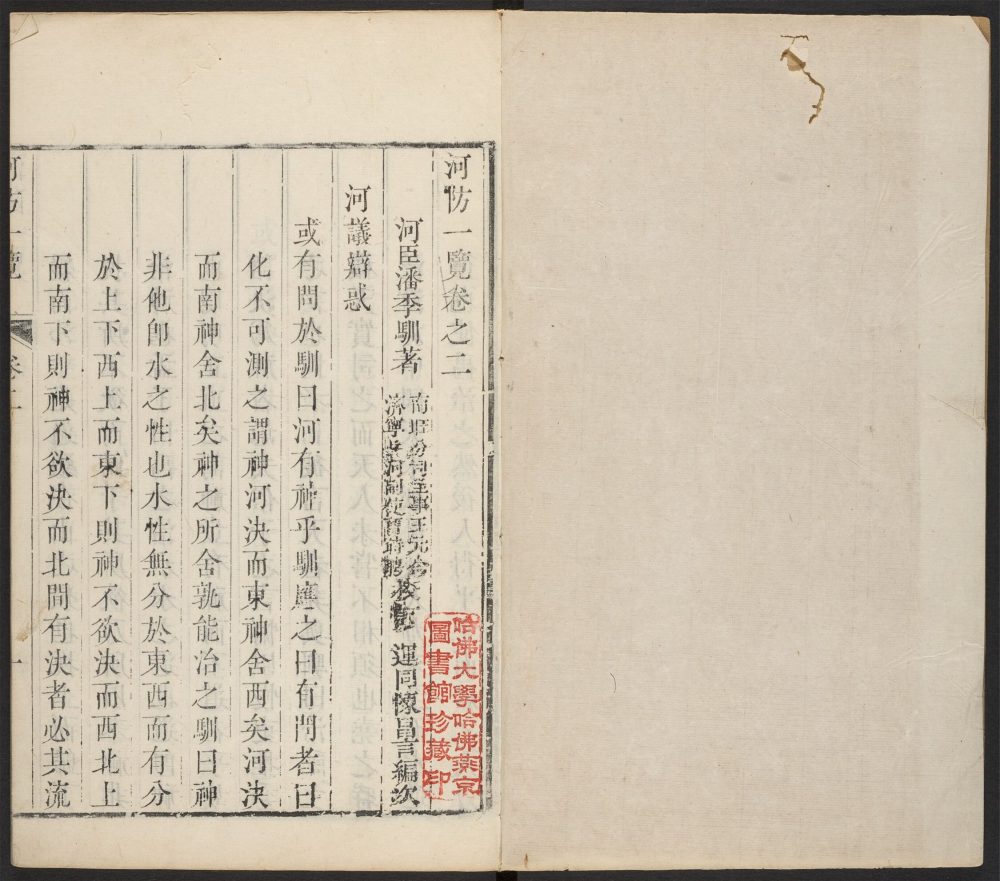 河防一覽卷之二
河臣潘季馴著
校
運同陳昌言編次
哈佛大學哈佛燕京
圖書館珍藏印
河議辯惑
或有問於馴曰河有神乎馴應之曰有問者曰
化不可測之謂神河決而東神舍西矣河決
而南神舍北矣神之所舍孰能治之馴曰神
非他卽水之性也水性無分於東西而有分
於上下西上而東下則神不欲決而西北上
而南下則神不欲決而北間有決者必其流
河防一覽
卷二
一